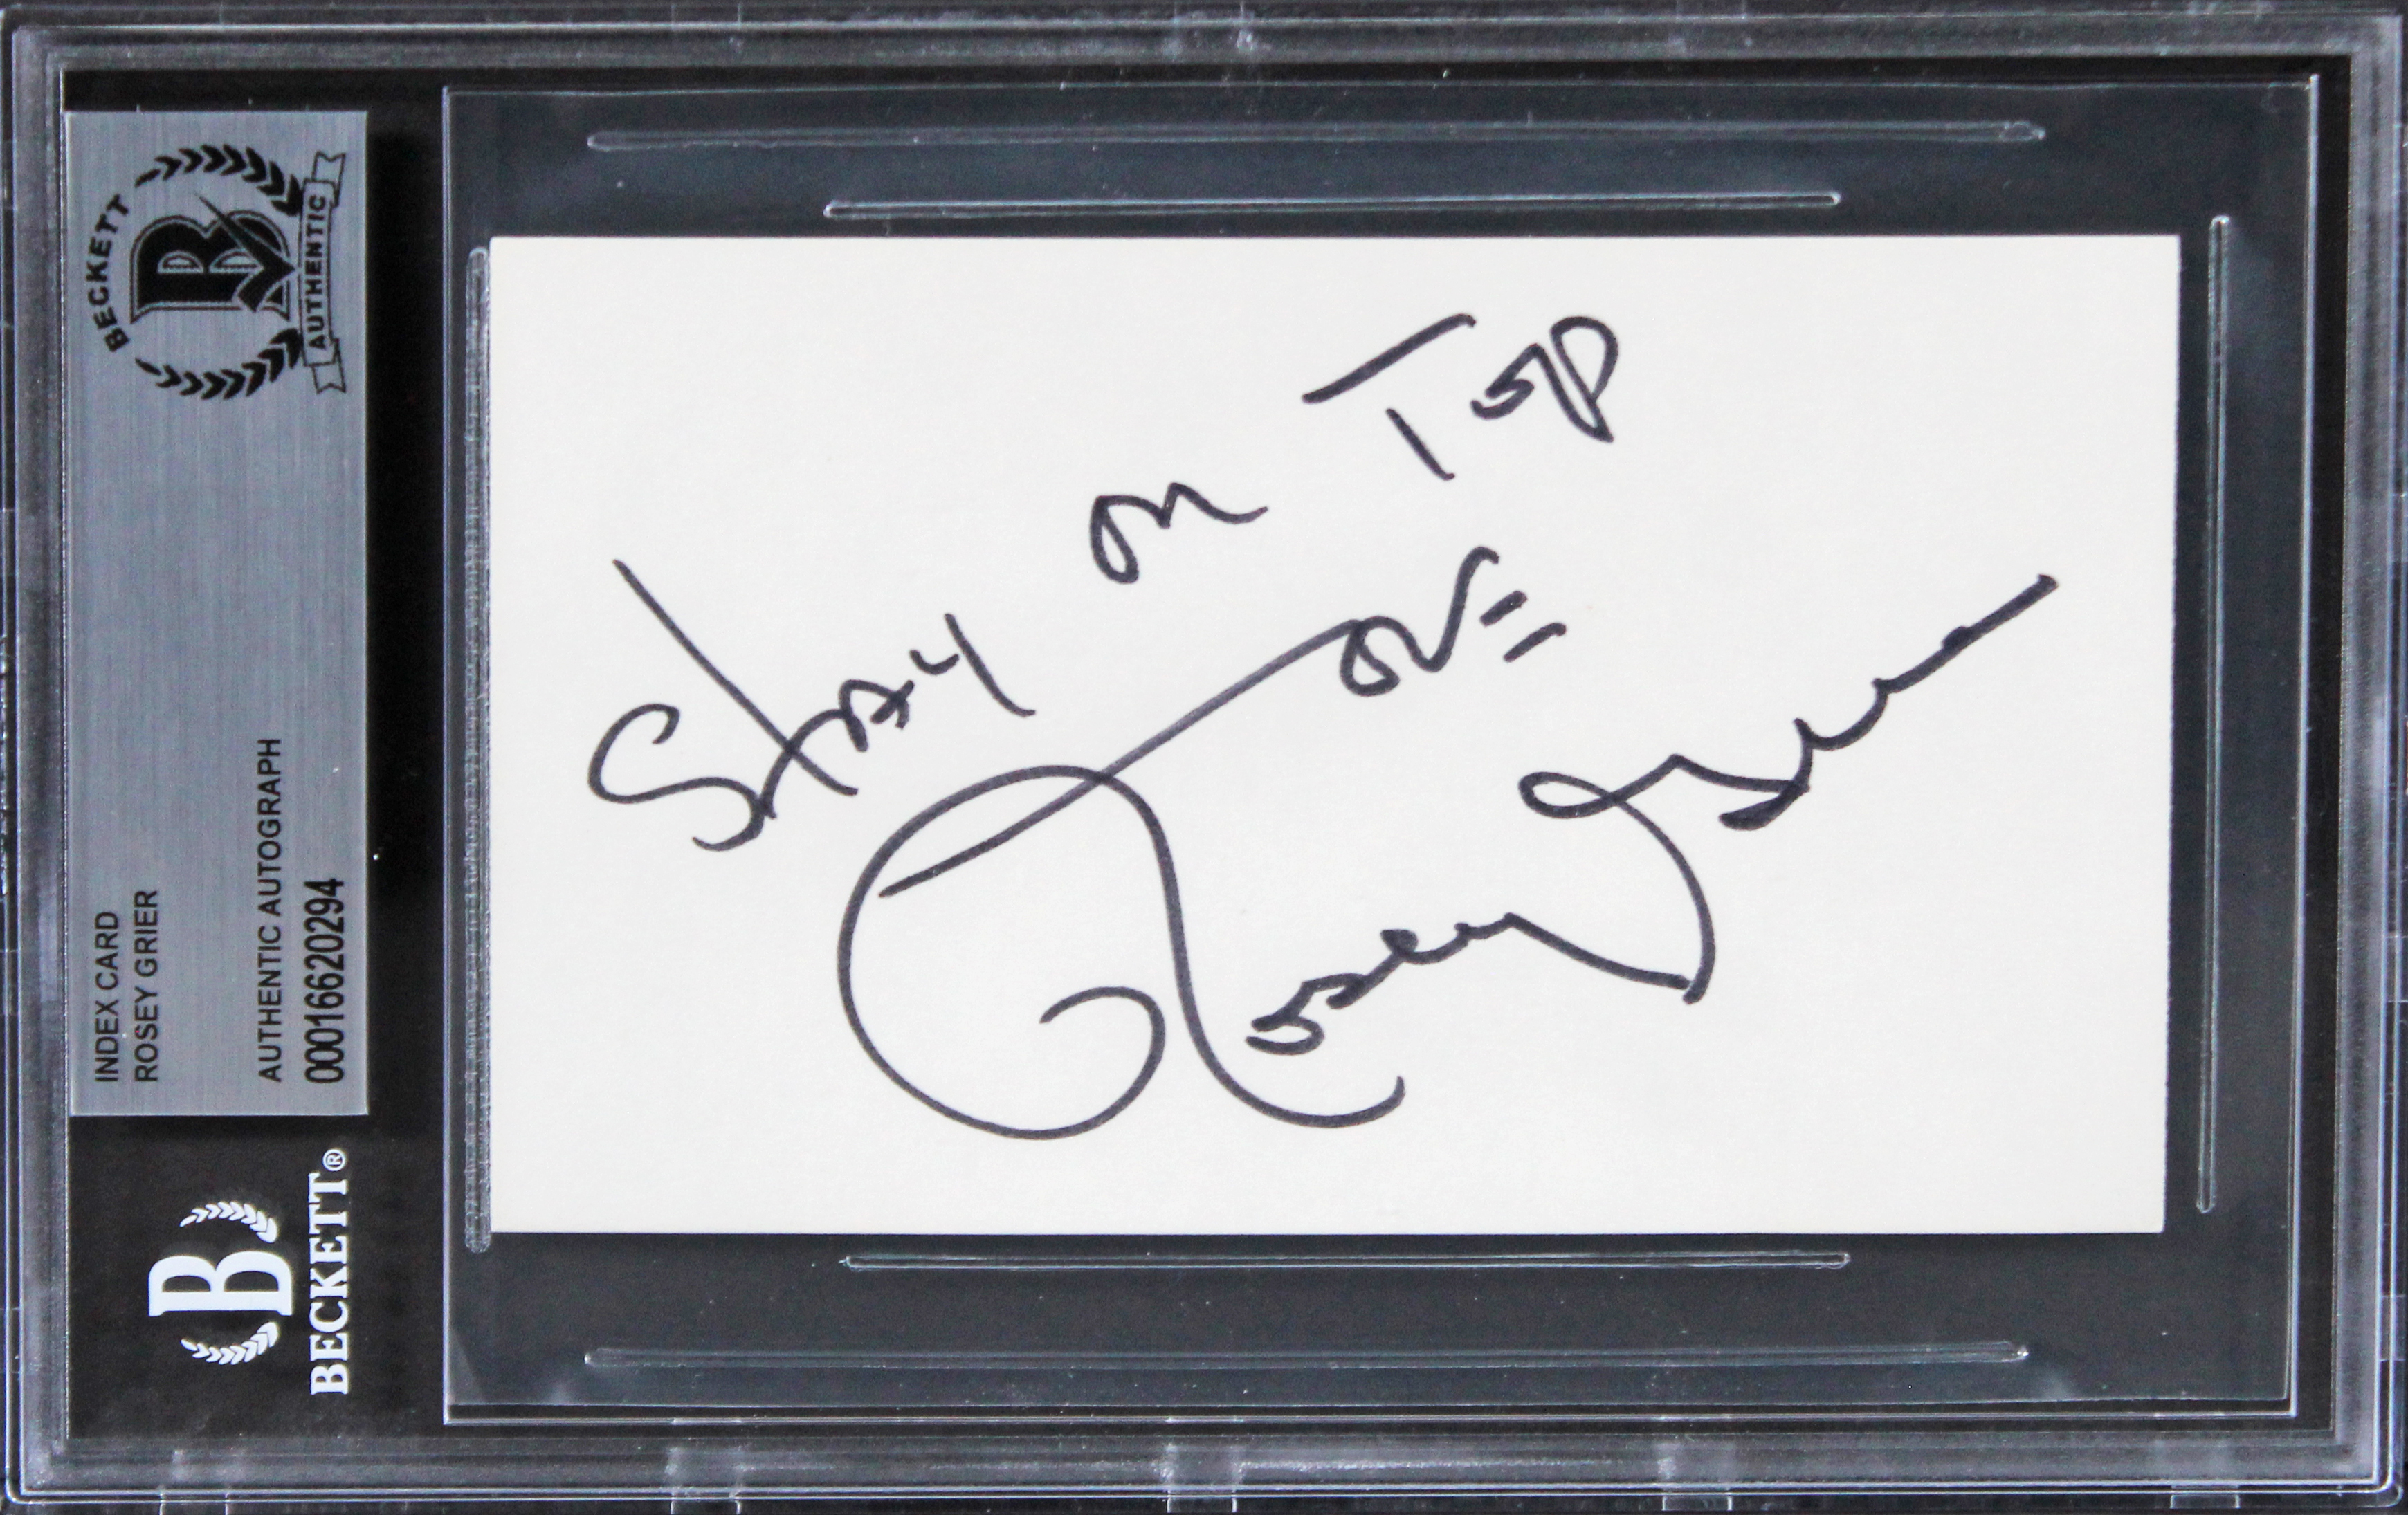 BECKETT
AUTHENTIC
INDEX CARD
ROSEY GRIER
AUTHENTIC AUTOGRAPH
00016620294
BECKETT®
Stay on Top
Love
Rosey Grier